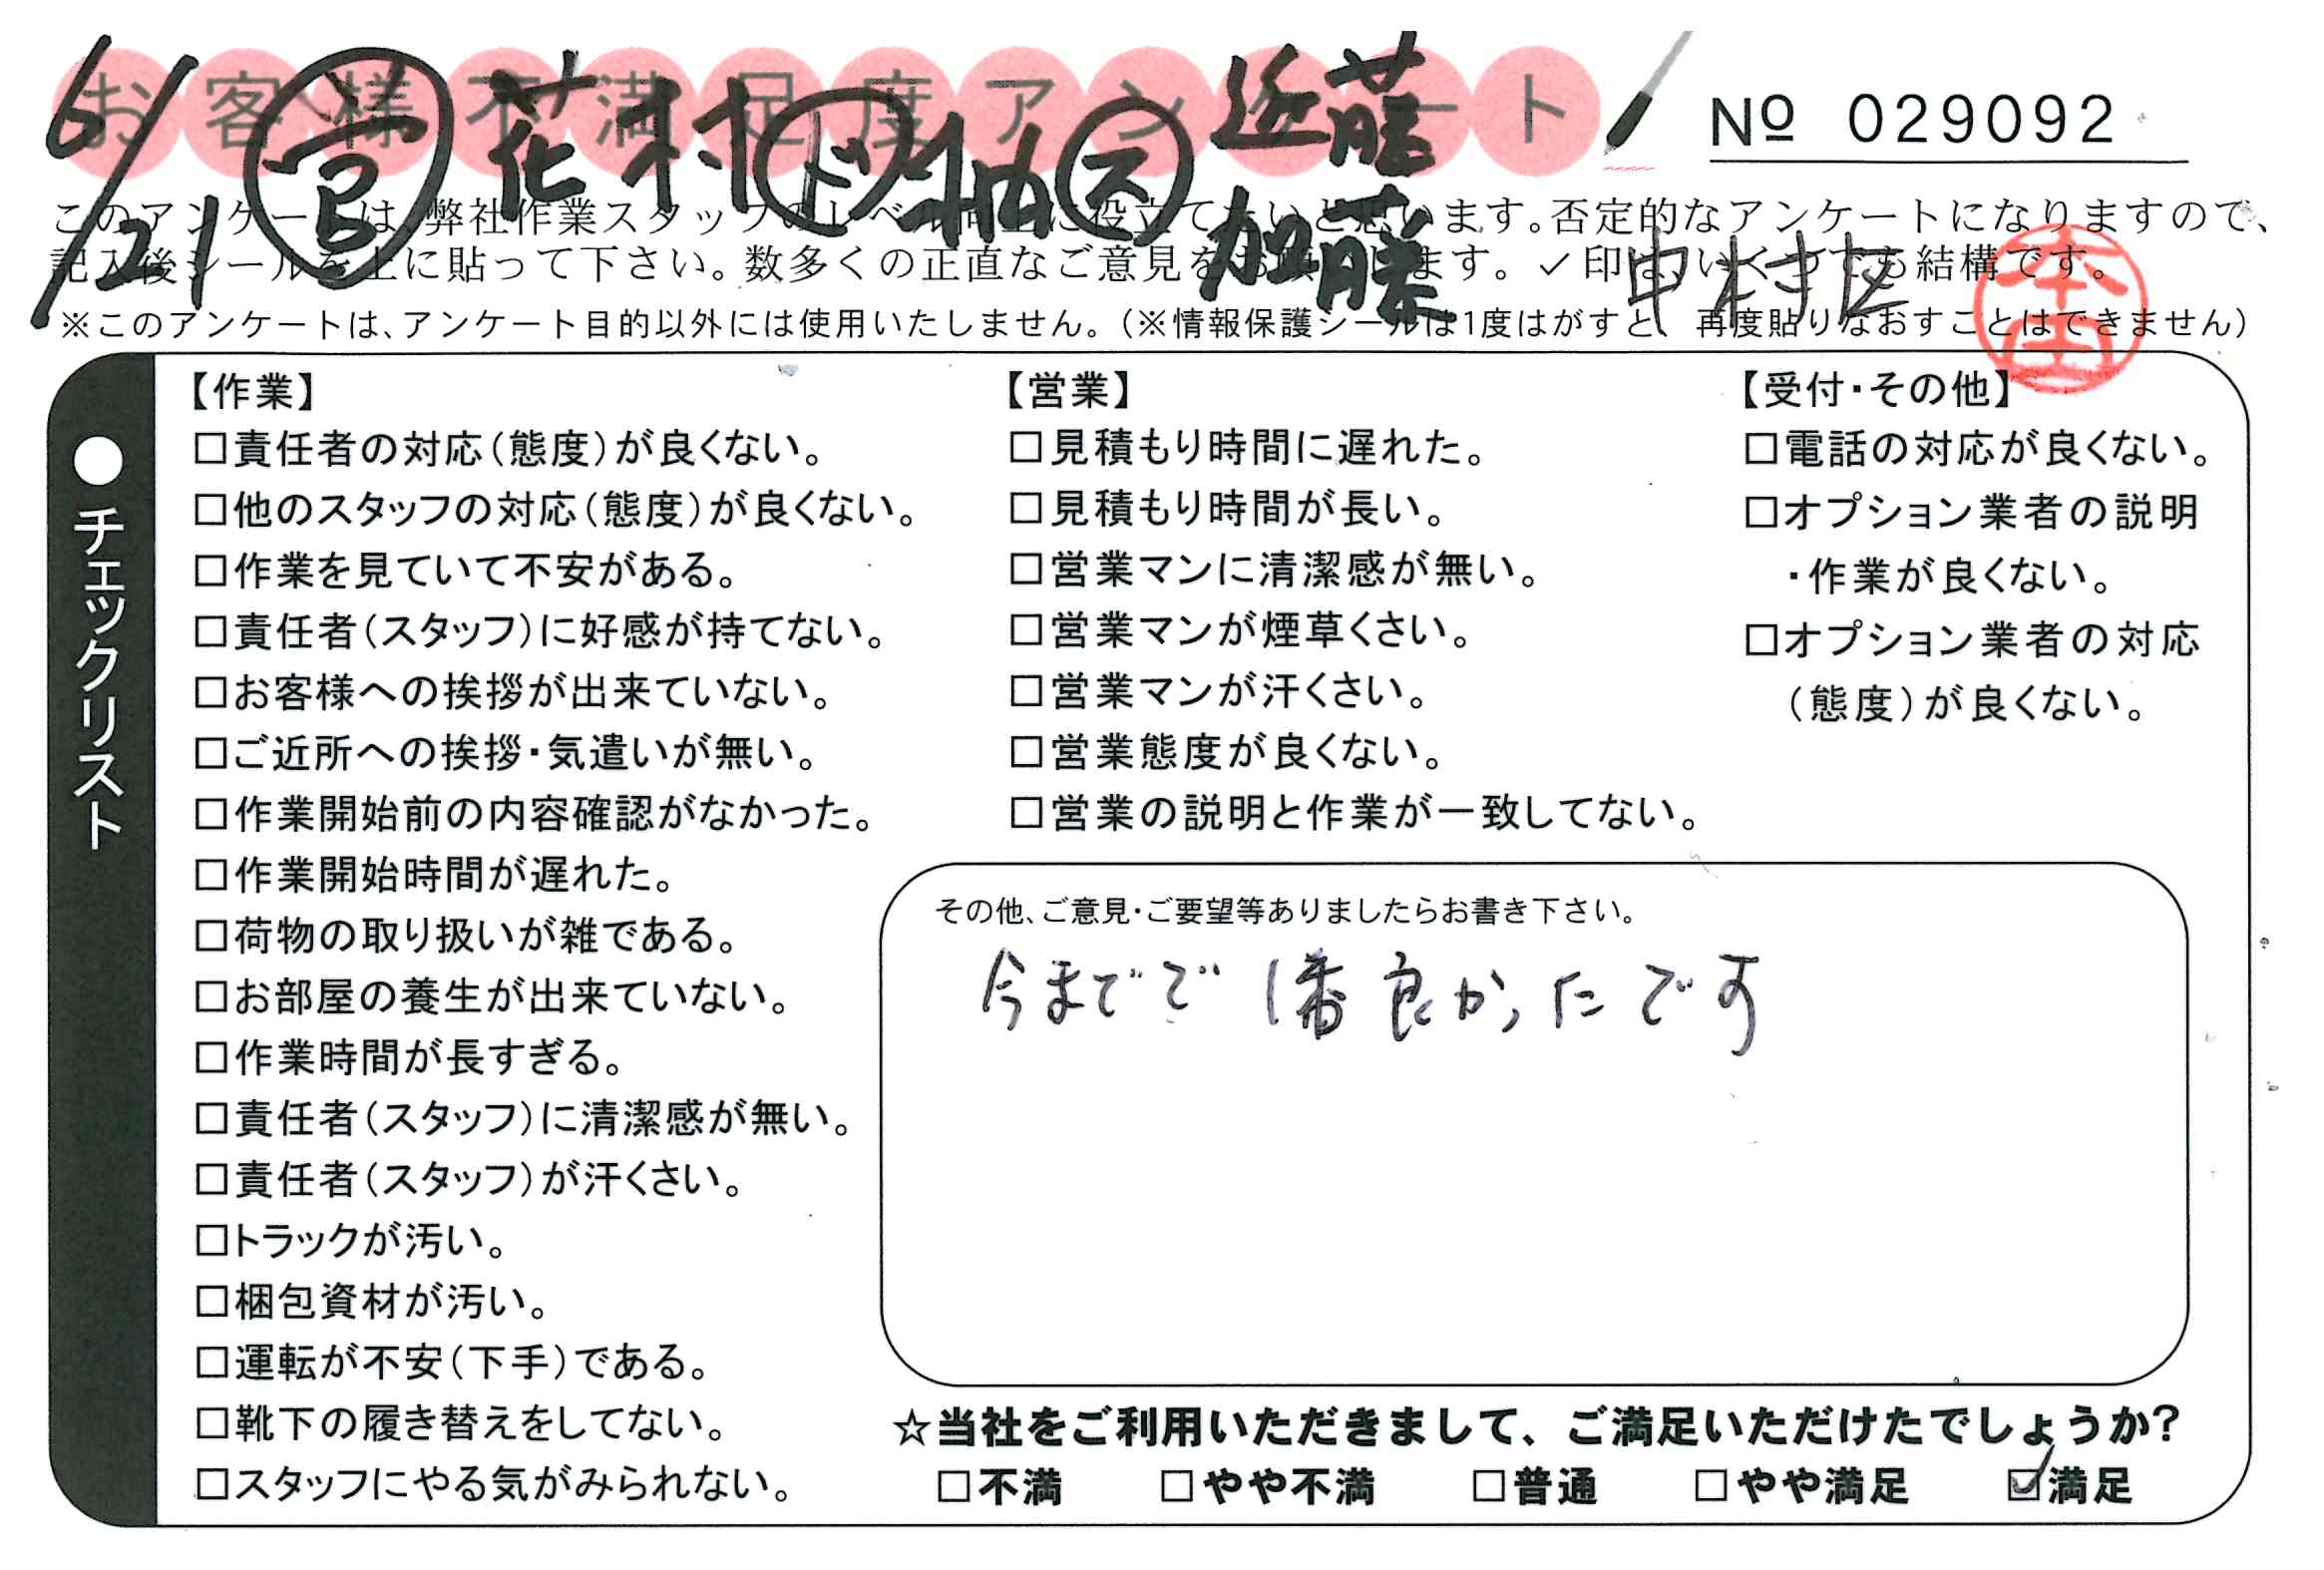 お客様不満足度アンケート
№ 029092
6/21 営 花村 ド 柚 ス 近藤
加藤
中村区
本田
このアンケートは、弊社作業スタッフのレベル向上に役立てたいと思います。否定的なアンケートになりますので、
記入後シールを上に貼って下さい。数多くの正直なご意見をお願いします。✓印は、いくつでも結構です。
※このアンケートは、アンケート目的以外には使用いたしません。（※情報保護シールは1度はがすと、再度貼りなおすことはできません）
●チェックリスト
【作業】
□責任者の対応（態度）が良くない。
□他のスタッフの対応（態度）が良くない。
□作業を見ていて不安がある。
□責任者（スタッフ）に好感が持てない。
□お客様への挨拶が出来ていない。
□ご近所への挨拶・気遣いが無い。
□作業開始前の内容確認がなかった。
□作業開始時間が遅れた。
□荷物の取り扱いが雑である。
□お部屋の養生が出来ていない。
□作業時間が長すぎる。
□責任者（スタッフ）に清潔感が無い。
□責任者（スタッフ）が汗くさい。
□トラックが汚い。
□梱包資材が汚い。
□運転が不安（下手）である。
□靴下の履き替えをしてない。
□スタッフにやる気がみられない。
【営業】
□見積もり時間に遅れた。
□見積もり時間が長い。
□営業マンに清潔感が無い。
□営業マンが煙草くさい。
□営業マンが汗くさい。
□営業態度が良くない。
□営業の説明と作業が一致してない。
【受付・その他】
□電話の対応が良くない。
□オプション業者の説明
・作業が良くない。
□オプション業者の対応
（態度）が良くない。
その他、ご意見・ご要望等ありましたらお書き下さい。
今までで1番良かったです
☆当社をご利用いただきまして、ご満足いただけたでしょうか?
□不満 □やや不満 □普通 □やや満足 ☑満足